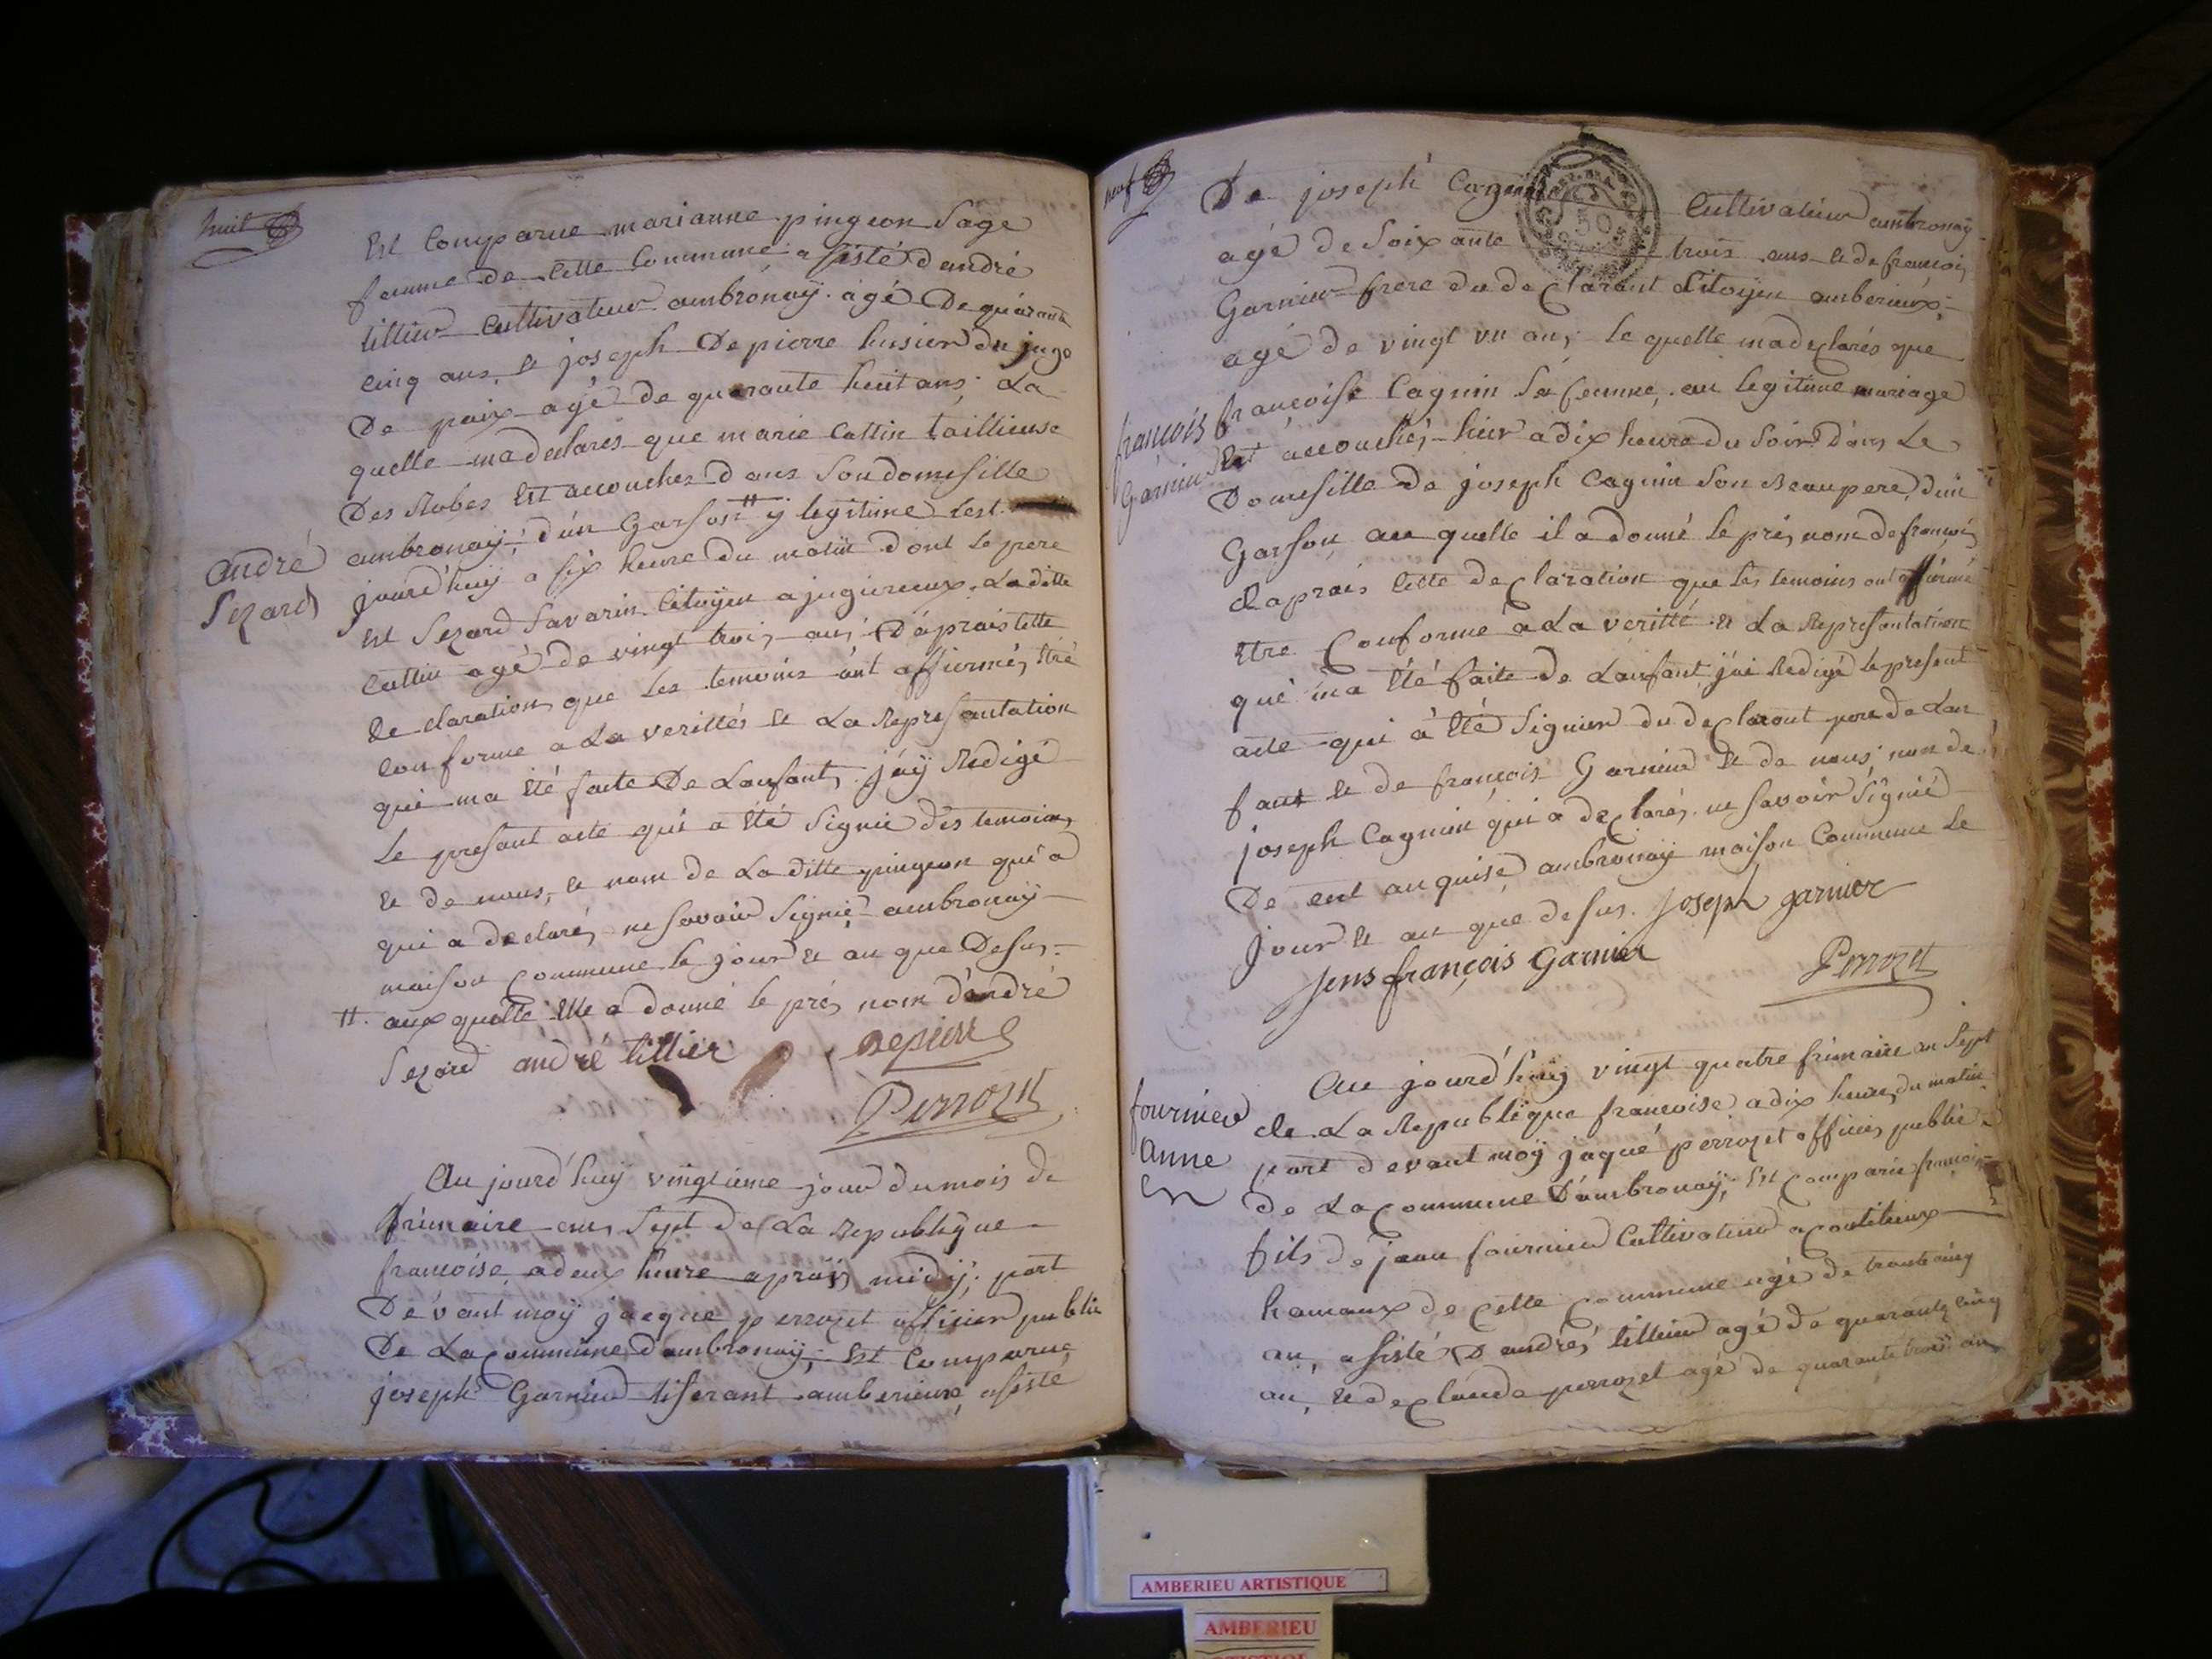 huit
Est Comparue marianne pingeon Sage
femme de Cette Commune asisté d'andré
tillier Cultivateur ambronaÿ agé De quarante
cinq ans, et joseph Depierre husier du juge
De paix agé de quarante huit ans; La
quelle ma declarés que marie Cattin taillieuse
Des Robes Est accouchee dans Son domesille
ambronaÿ; d'un Garson # ÿ legitime cest
andré
Sezard
jourd'huÿ a six heure Du matin dont le pere
Est Sezard Savarin Citoyen a jugurieux. La ditte
Cattin agé de vingt trois ans; D'aprais Cette
De claration que les temoins ont affiermés être
conforme a La verittés et La Represantation
qui ma été faite De Lanfant, j'aÿ Redigé
le presant acte qui a été Signié des temoins
et de nous, et nom de La ditte pingeon qui a
qui a declarés ne Savoir Signié ambronaÿ
maison Commune le jour et an que Desus.
#. aux quelle Elle a donné le prés nom d'andré
Sezard andré tillier Depierre
Perrozet
Au jourd'huÿ vingtieme jour du mois de
frimaire ans Sept de La Republique
francoise a deux heure aprais midÿ; part
Devant moÿ jacque perrozet officier public
De La Commune d'ambronaÿ; Est Comparue
joseph Garnier tiserant amberieux, asisté
neuf
De joseph Cagnin Cultivateur ambronaÿ
agé de Soixante trois ans et de francois
Garnier frere du declarant Citoÿen amberieux
agé de vingt un ans, le quelle ma declarés que
françois
Garnier
francoise Cagnin Sa femme, en legitime mariage
Est accouchés hier a dix heure du Soir dans le
Domesille de joseph Cagnin Son Beaupere, d'un
Garson au quelle il a donné le prés nom de francois
d'aprais Cette declaration que les temoins ont affirmé
Etre Conforme a La veritté et La Represantation
qui ma été faite de Lanfant, j'ai Redigé le presant
acte qui a été Signier du declarant pere de Lan
fant et de francois Garnier et de nous; non de
joseph Cagnin qui a declarés ne Savoir Signié
De ent anquise ambronaÿ maison Commune le
jour et an que desus. Joseph garnier
Jens françois Garnier
Perrozet
Au jourd'huÿ vingt quatre frimaire an Sept
fournier
Anne
de La Republique francoise a dix heures du matin
part devant moÿ jaque perrozet officier public
de La Commune D'ambronaÿ, Est Comparue francois
fils de jean fournier Cultivateur a Coutilieux
hamaux de Cette Commune agé de trante cinq
an, asisté D'andrés tillier agé de quarante cinq
an, et de Claude perrozet agé de quarante trois ans
AMBERIEU ARTISTIQUE
AMBERIEU
ARTISTIQUE